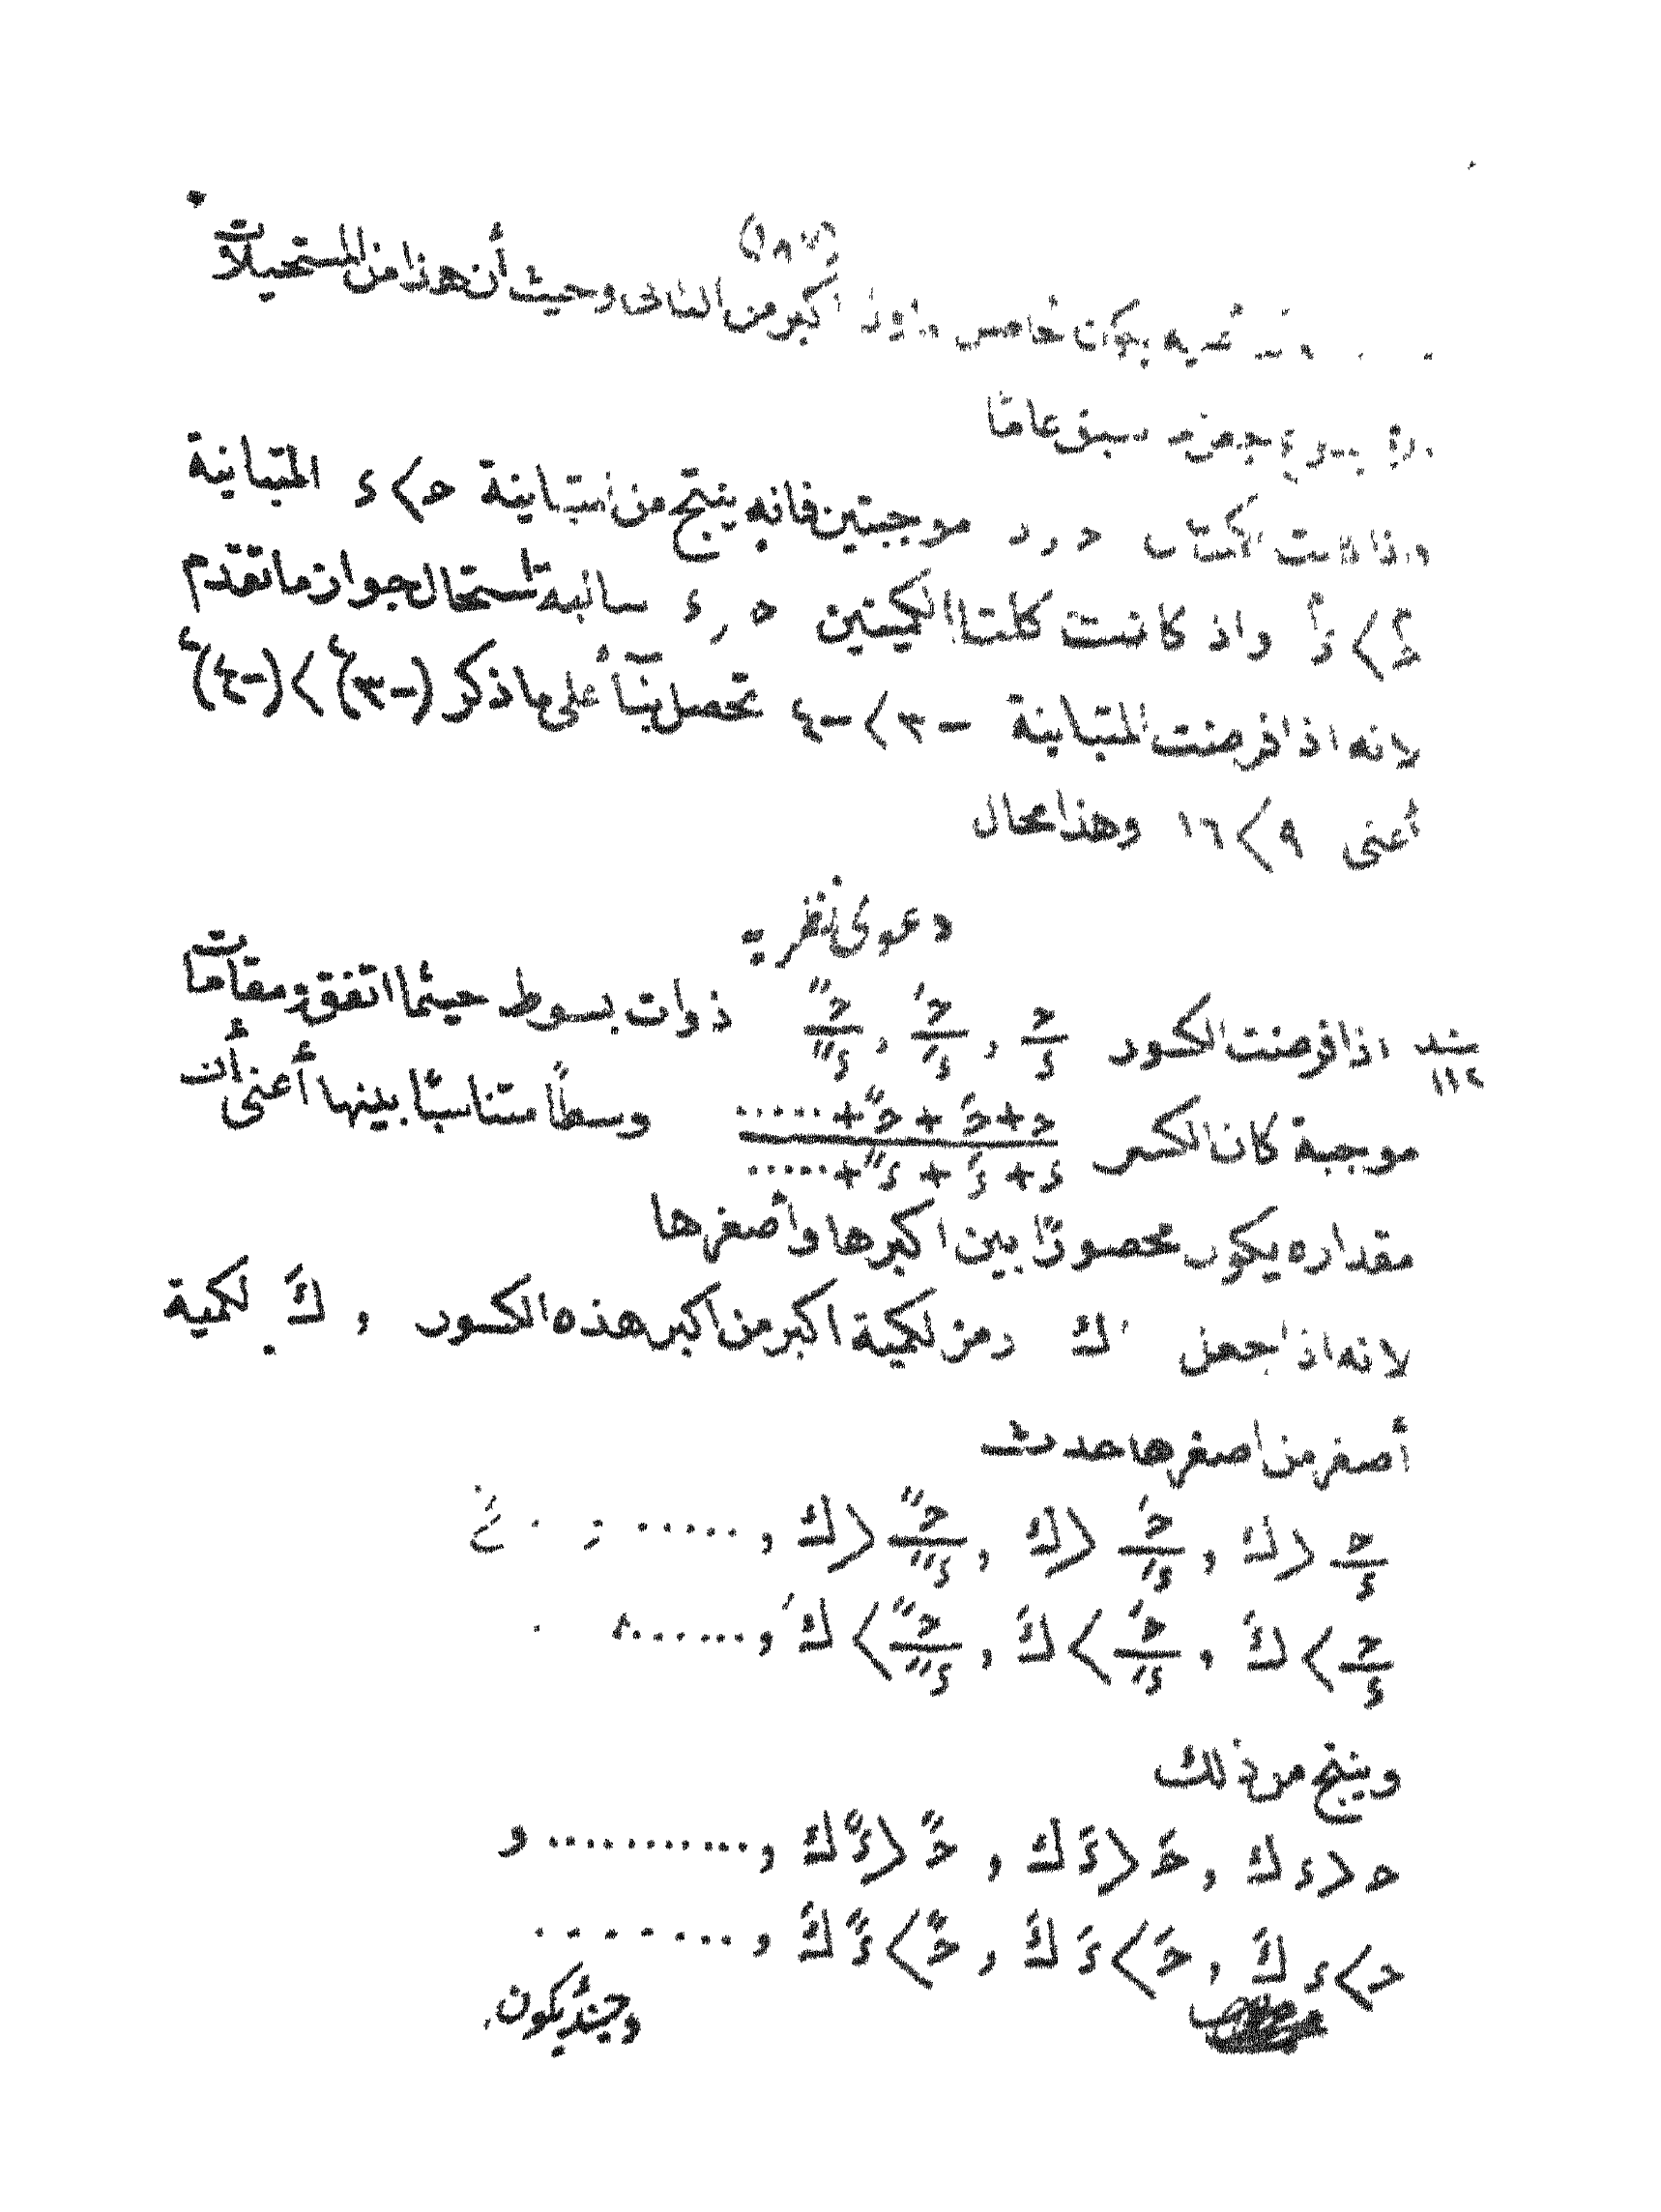 (١٨٧)
يكون خامس اكبر من الثانى وحيث أن هذا من المستحيلات
سبق عامًا
واذا كانت الكميتان ح ر د موجبتين فانه ينتج من المتباينة ح > ء المتباينة
واذ كانت كلتا الكميتين ح ر ء سالبة استحال جواز ما تقدم
لانه اذا فرضت المتباينة -٣ > -٤ تحصل بنآءً على ما ذكر (-٣)^٤ > (-٤)^٤
أعنى ٩ > ١٦ وهذا محال
دعوى نظرية
بند ١١٢ اذا فرضت الكسور ح/ء , حَ/ءَ , حً/ءً ذوات بسوط حيثما اتفق ومقامات
موجبة كان الكسر (ح + حَ + حً + .....)/(ء + ءَ + ءً + .....) وسطًا متناسبًا بينها أعنى أن
مقداره يكون محصورًا بين اكبرها وأصغرها
لانه اذا جعل ك رمز لكمية اكبر من أكبر هذه الكسور , كَ لكمية
أصغر من اصغرها حدث
ح/ء < ك , حَ/ءَ < ك , حً/ءً < ك , .....
ح/ء > كَ , حَ/ءَ > كَ , حً/ءً > كَ , .......
وينتج من ذلك
ح < ء ك , حَ < ءَ ك , حً < ءً ك , ........... و
ح > ء كَ , حَ > ءَ كَ , حً > ءً كَ , ........
وحينئذ يكون